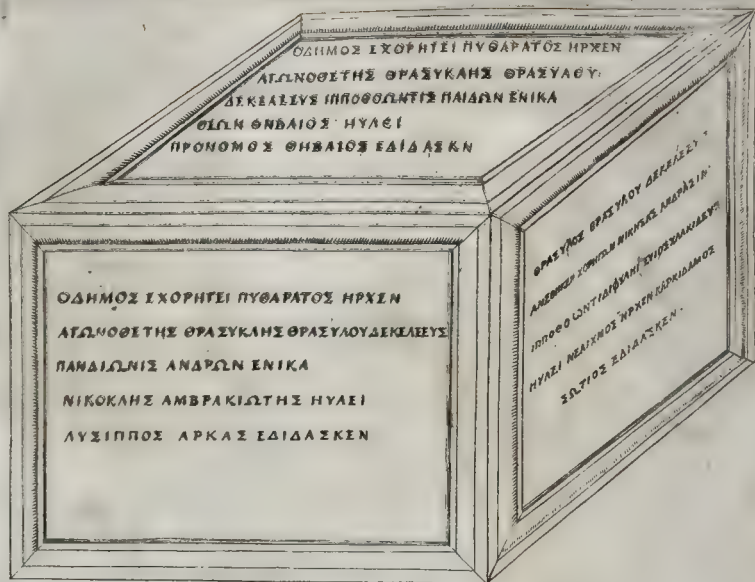 ΟΔΗΜΟΣ ΕΧΟΡΗΓΕΙ ΠΥΘΑΡΑΤΟΣ ΗΡΧΕΝ
ΑΓΩΝΟΘΕΤΗΣ ΘΡΑΣΥΚΛΗΣ ΘΡΑΣΥΛΟΥ
ΔΕΚΕΛΕΕΥΣ ΙΠΠΟΘΟΩΝΤΙΣ ΠΑΙΔΩΝ ΕΝΙΚΑ
ΘΕΩΝ ΘΗΒΑΙΟΣ ΗΥΛΕΙ
ΠΡΟΝΟΜΟΣ ΘΗΒΑΙΟΣ ΕΔΙΔΑΣΚΝ
ΟΔΗΜΟΣ ΕΧΟΡΗΓΕΙ ΠΥΘΑΡΑΤΟΣ ΗΡΧΕΝ
ΑΓΩΝΟΘΕΤΗΣ ΘΡΑΣΥΚΛΗΣ ΘΡΑΣΥΛΟΥ ΔΕΚΕΛΕΕΥΣ
ΠΑΝΔΙΩΝΙΣ ΑΝΔΡΩΝ ΕΝΙΚΑ
ΝΙΚΟΚΛΗΣ ΑΜΒΡΑΚΙΩΤΗΣ ΗΥΛΕΙ
ΛΥΣΙΠΠΟΣ ΑΡΚΑΣ ΕΔΙΔΑΣΚΕΝ
ΘΡΑΣΥΛΟΣ ΘΡΑΣΥΛΟΥ ΔΕΚΕΛΕΕΥ
ΑΝΕΘΗΚΕΝ ΧΟΡΗΓΩΝ ΝΙΚΗΣΑΣ ΑΝΔΡΑΣΙΝ
ΙΠΠΟΘΟΩΝΤΙΔΙΦΥΛΗΙ
ΗΥΛΕΙ ΝΕΑΙΧΜΟΣ ΗΡΧΕΝ ΚΑΡΚΙΔΑΜΟΣ
ΣΩΤΙΟΣ ΕΔΙΔΑΣΚΕΝ